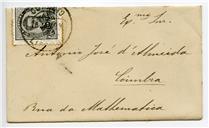 Ex.mo Snr.
Antonio José d'Almeida
Coimbra
Rua da Mathematica